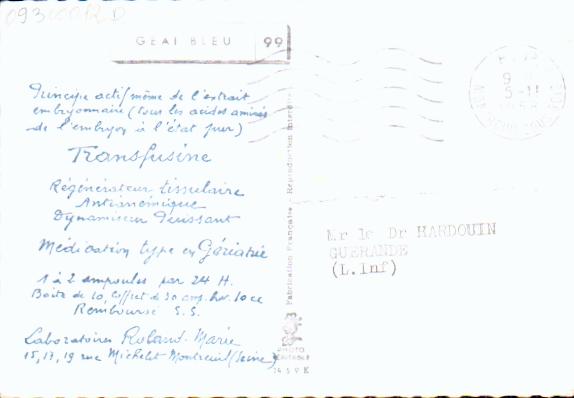 GEAI BLEU 99
Principe actif même de l'extrait
embryonnaire (tous les acides aminés
de l'embryon à l'état pur)
Transfusine
Régénérateur tissulaire
Antianémique
Dynamiseur Puissant
Médication type en Gériatrie
1 à 2 ampoules par 24 H.
Boîte de 10, Coffret de 30 amp. buv. 10 cc
Remboursé S.S.
Laboratoires Roland-Marie
15, 17, 19 rue Michelet Montreuil (Seine)
Fabrication Française - Reproduction
PHOTO
VÉRITABLE
5-11
Mr le Dr HARDOUIN
GUERANDE
(L.Inf)